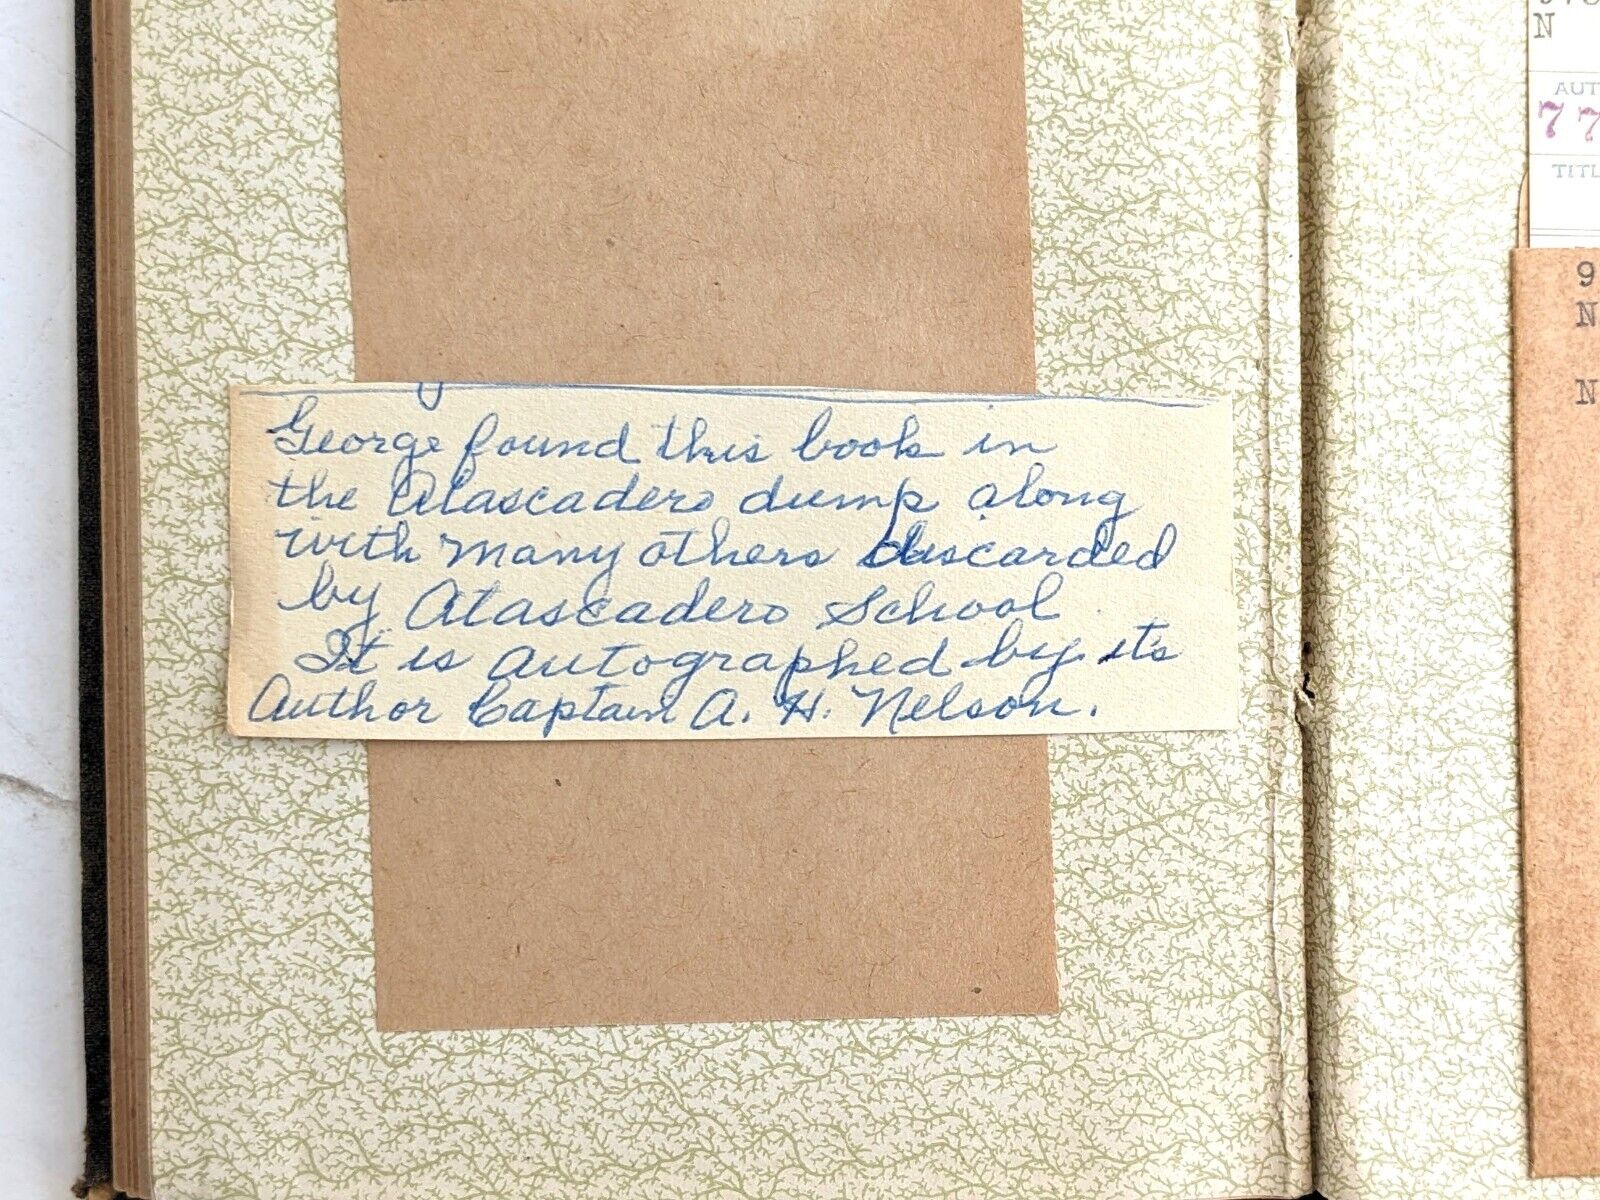 George found this book in
the Atascadero dump along
with many others discarded
by Atascadero School
It is autographed by it's
Author Captain A. H. Nelson.
N
AUT
77
TITL
9
N
N